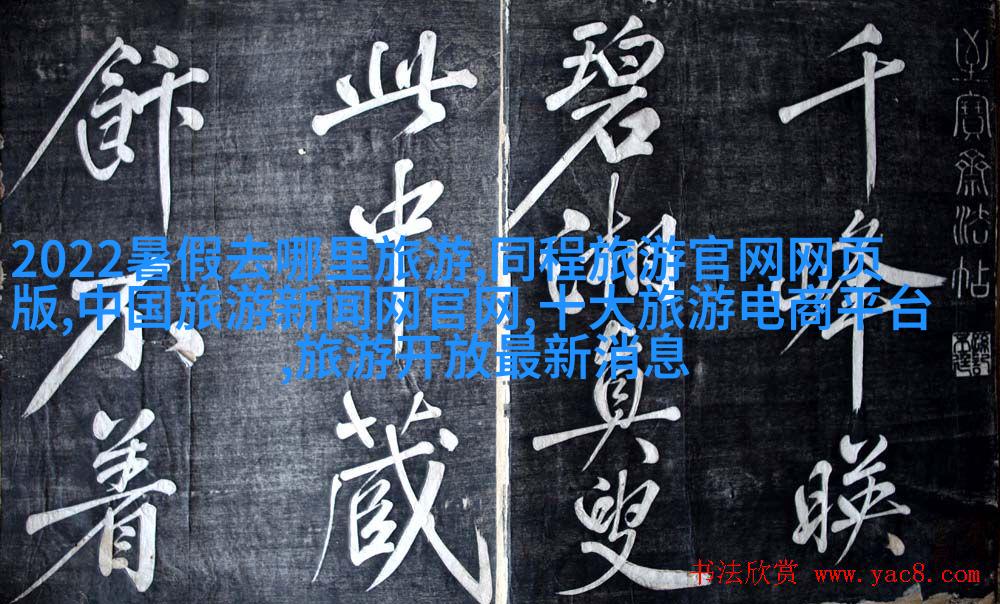 至寶齋法帖
千峰映
碧湘真叟
此中藏
飰不煮
2022暑假去哪里旅游,同程旅游官网网页
版,中国旅游新闻网官网,十大旅游电商平台
,旅游开放最新消息
书法欣赏 www.yac8.com